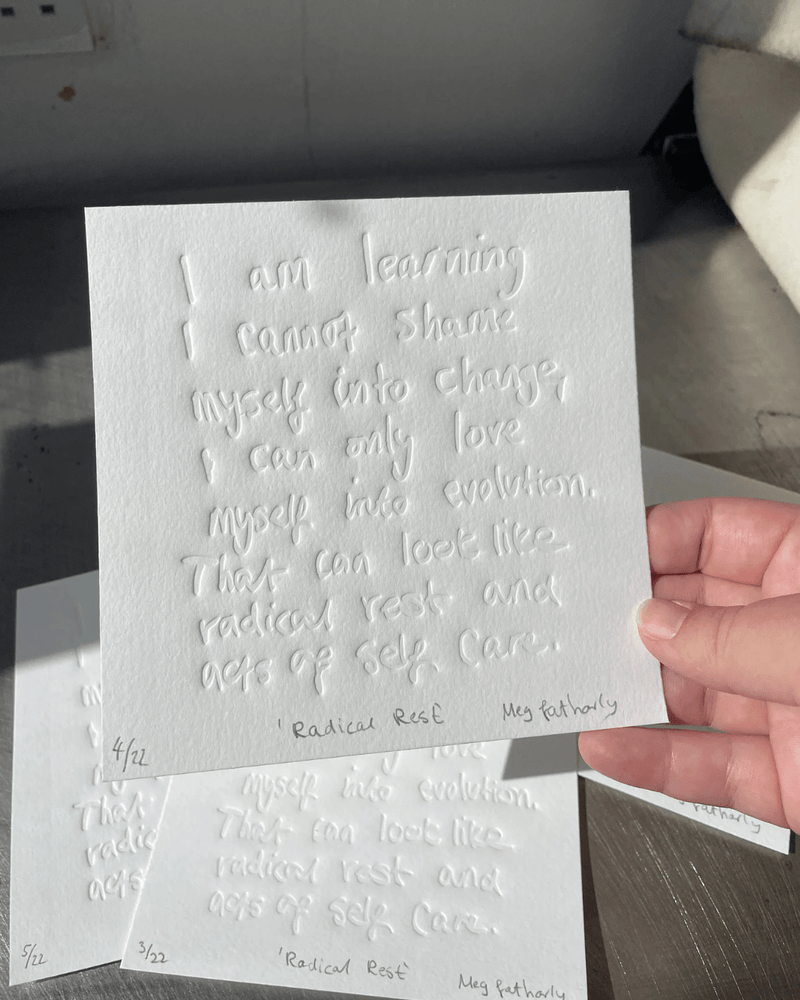 I am learning
I cannot shame
myself into change,
I can only love
myself into evolution.
That can look like
radical rest and
acts of self care.
4/22 'Radical Rest' Meg Fatharly
love
myself into evolution.
That can look like
radical rest and
acts of self care.
3/22 'Radical Rest' Meg Fatharly
That
radic
acts
5/22
Fatharly